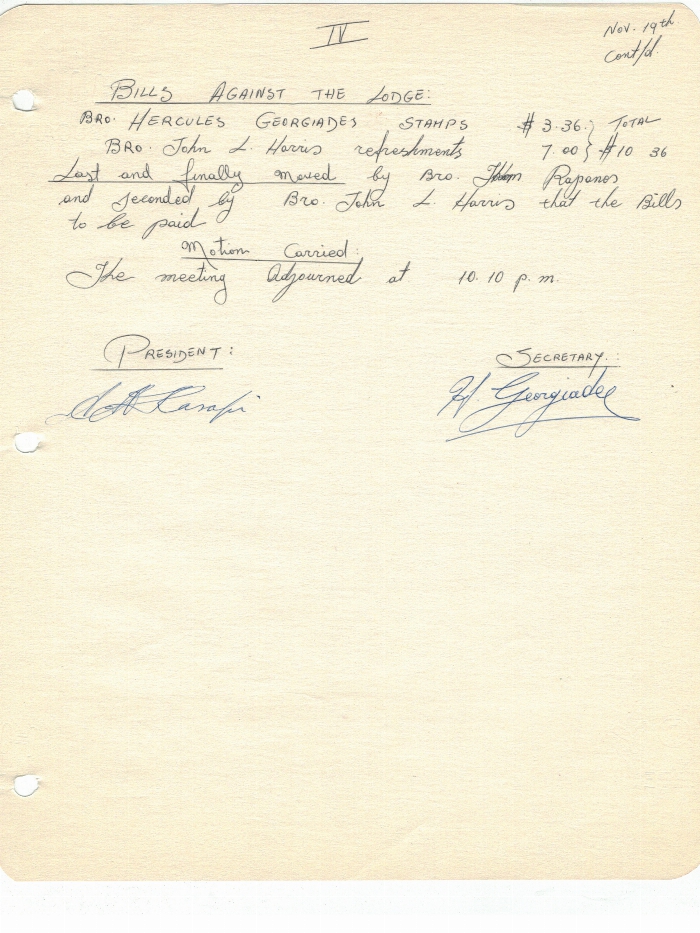 IV
Nov. 19th
Cont/d.
BILLS AGAINST THE LODGE:
BRO. HERCULES GEORGIADES STAMPS $ 3.36.} TOTAL
BRO. John L. Harris refreshments 7.00 } $10 36
Last and finally moved by Bro. Rapanos
and seconded by Bro. John L. Harris that the Bills
to be paid
Motion Carried:
The meeting Adjourned at 10.10 p.m.
PRESIDENT: SECRETARY.:
H. Georgiades